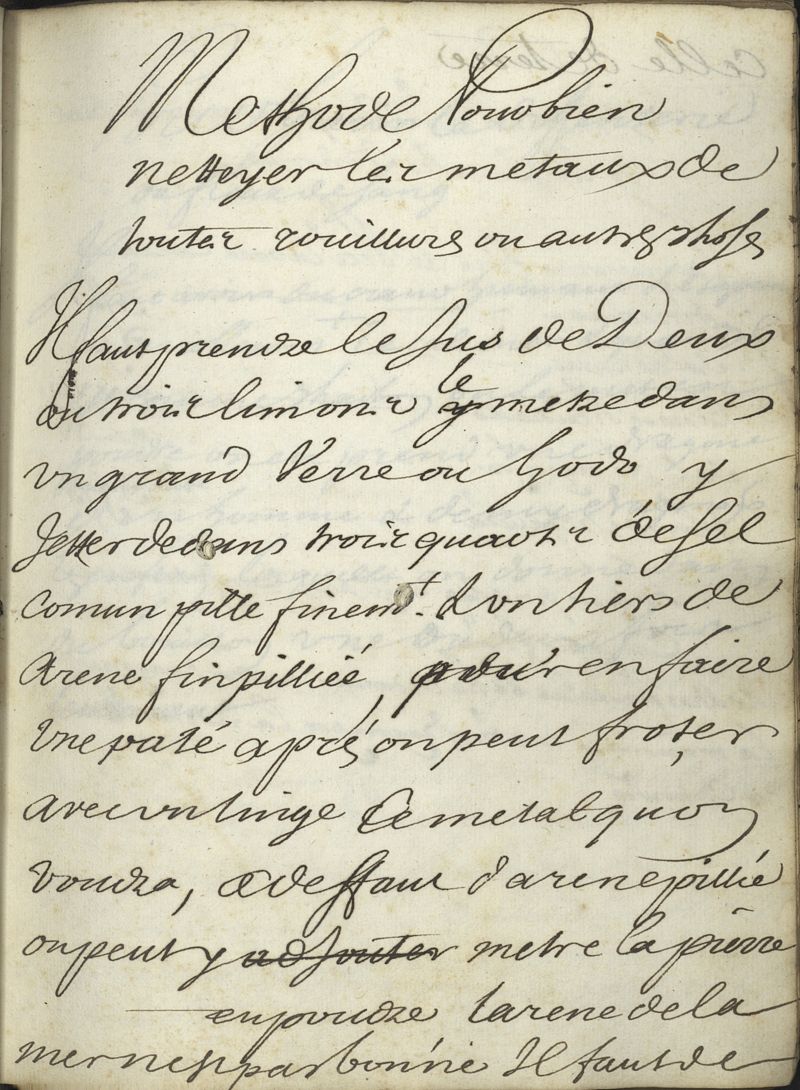 Methode Pour bien
netteyer les metaux de
toutes rouillures ou autres choses
Il faut prendre le Jus de Deux
ou trois limons le metre dans
un grand Verre ou godo y
Jetter dedans trois quarts de sel
comun pille finemt. & un tiers de
arene fin pilliée, pour en faire
une paté aprés on peut froter
avec un linge Le metal quon
voudra, a deffaut d'arene pillié
on peut y adjouter metre la pierre
en poudre larene de la
mer nest pas bonne Il faut de